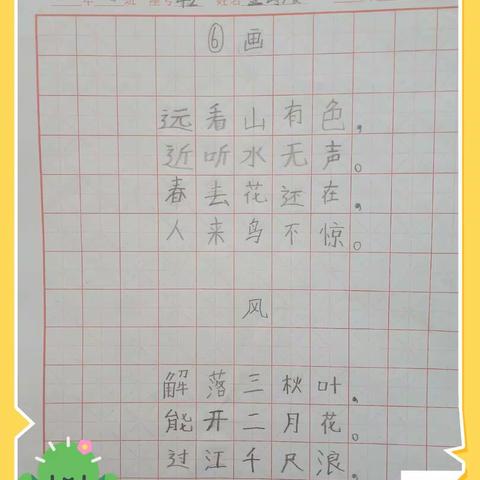 年 班 座号 姓名
⑥ 画
远看山有色，
近听水无声。
春去花还在，
人来鸟不惊。
风
解落三秋叶，
能开二月花。
过江千尺浪，